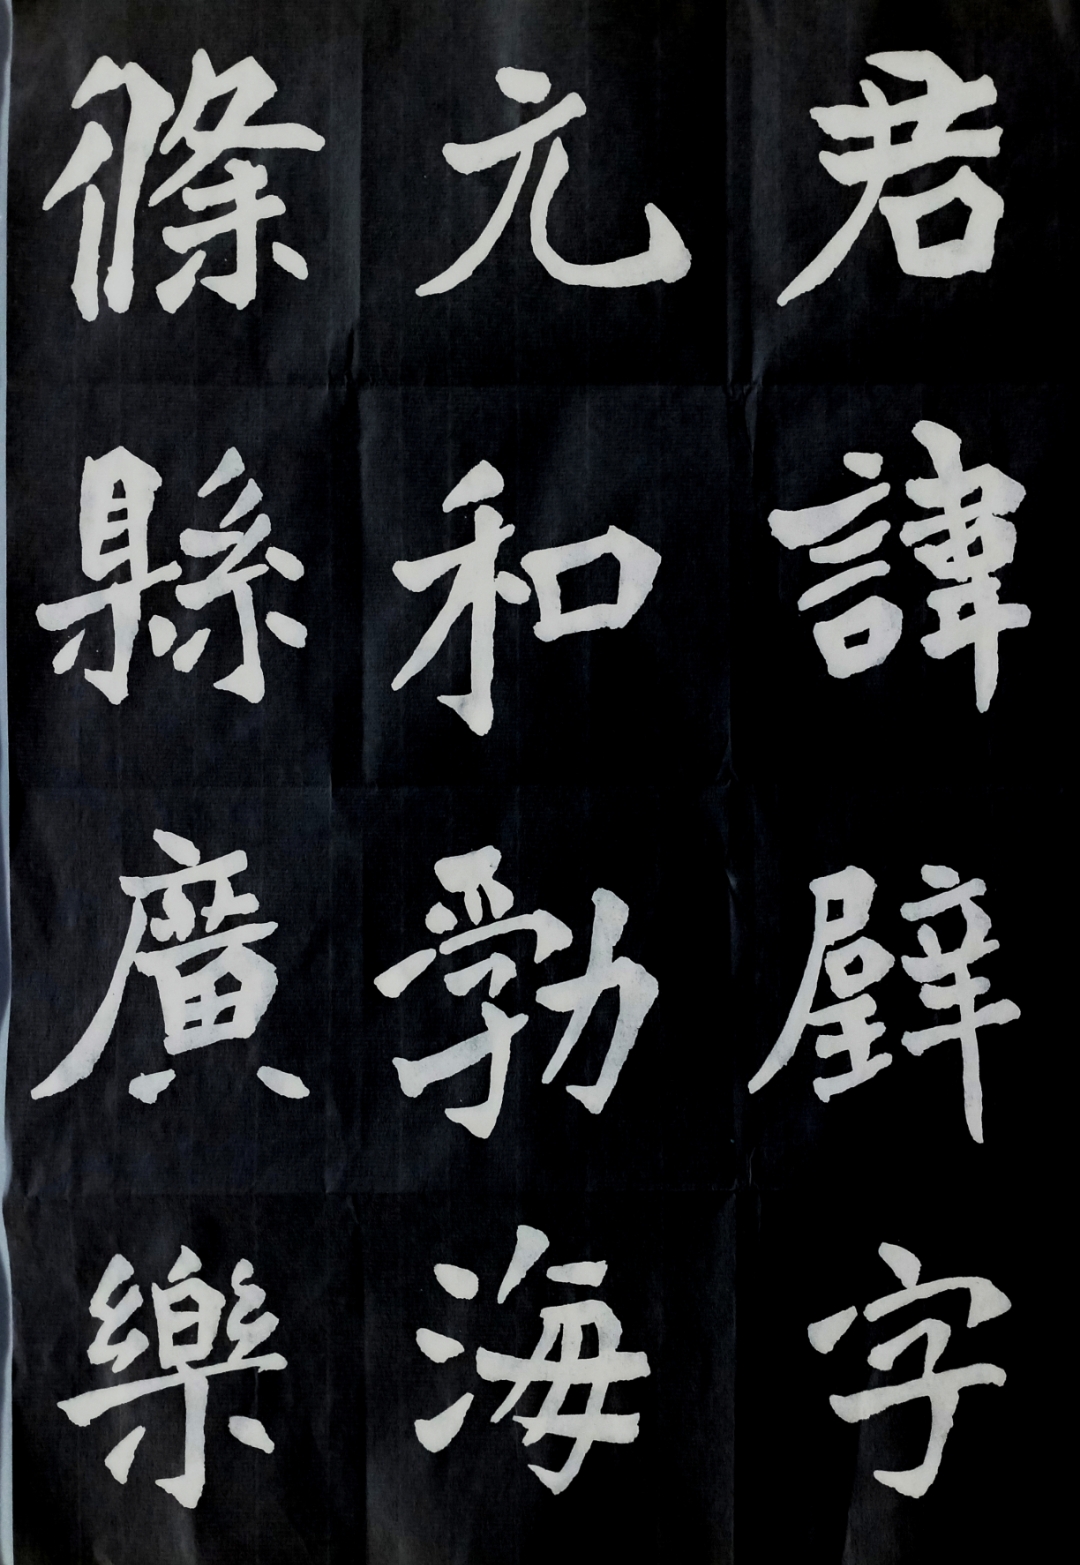 君諱璧字
元和勃海
條縣廣樂